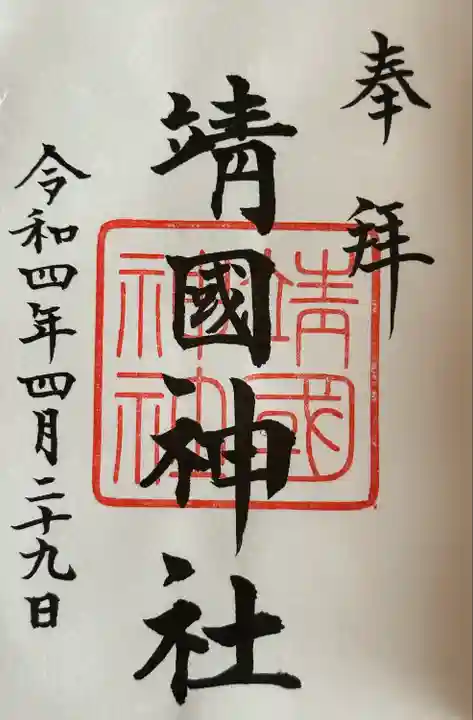 奉拝
靖國神社
靖國
神社
令和四年四月二十九日